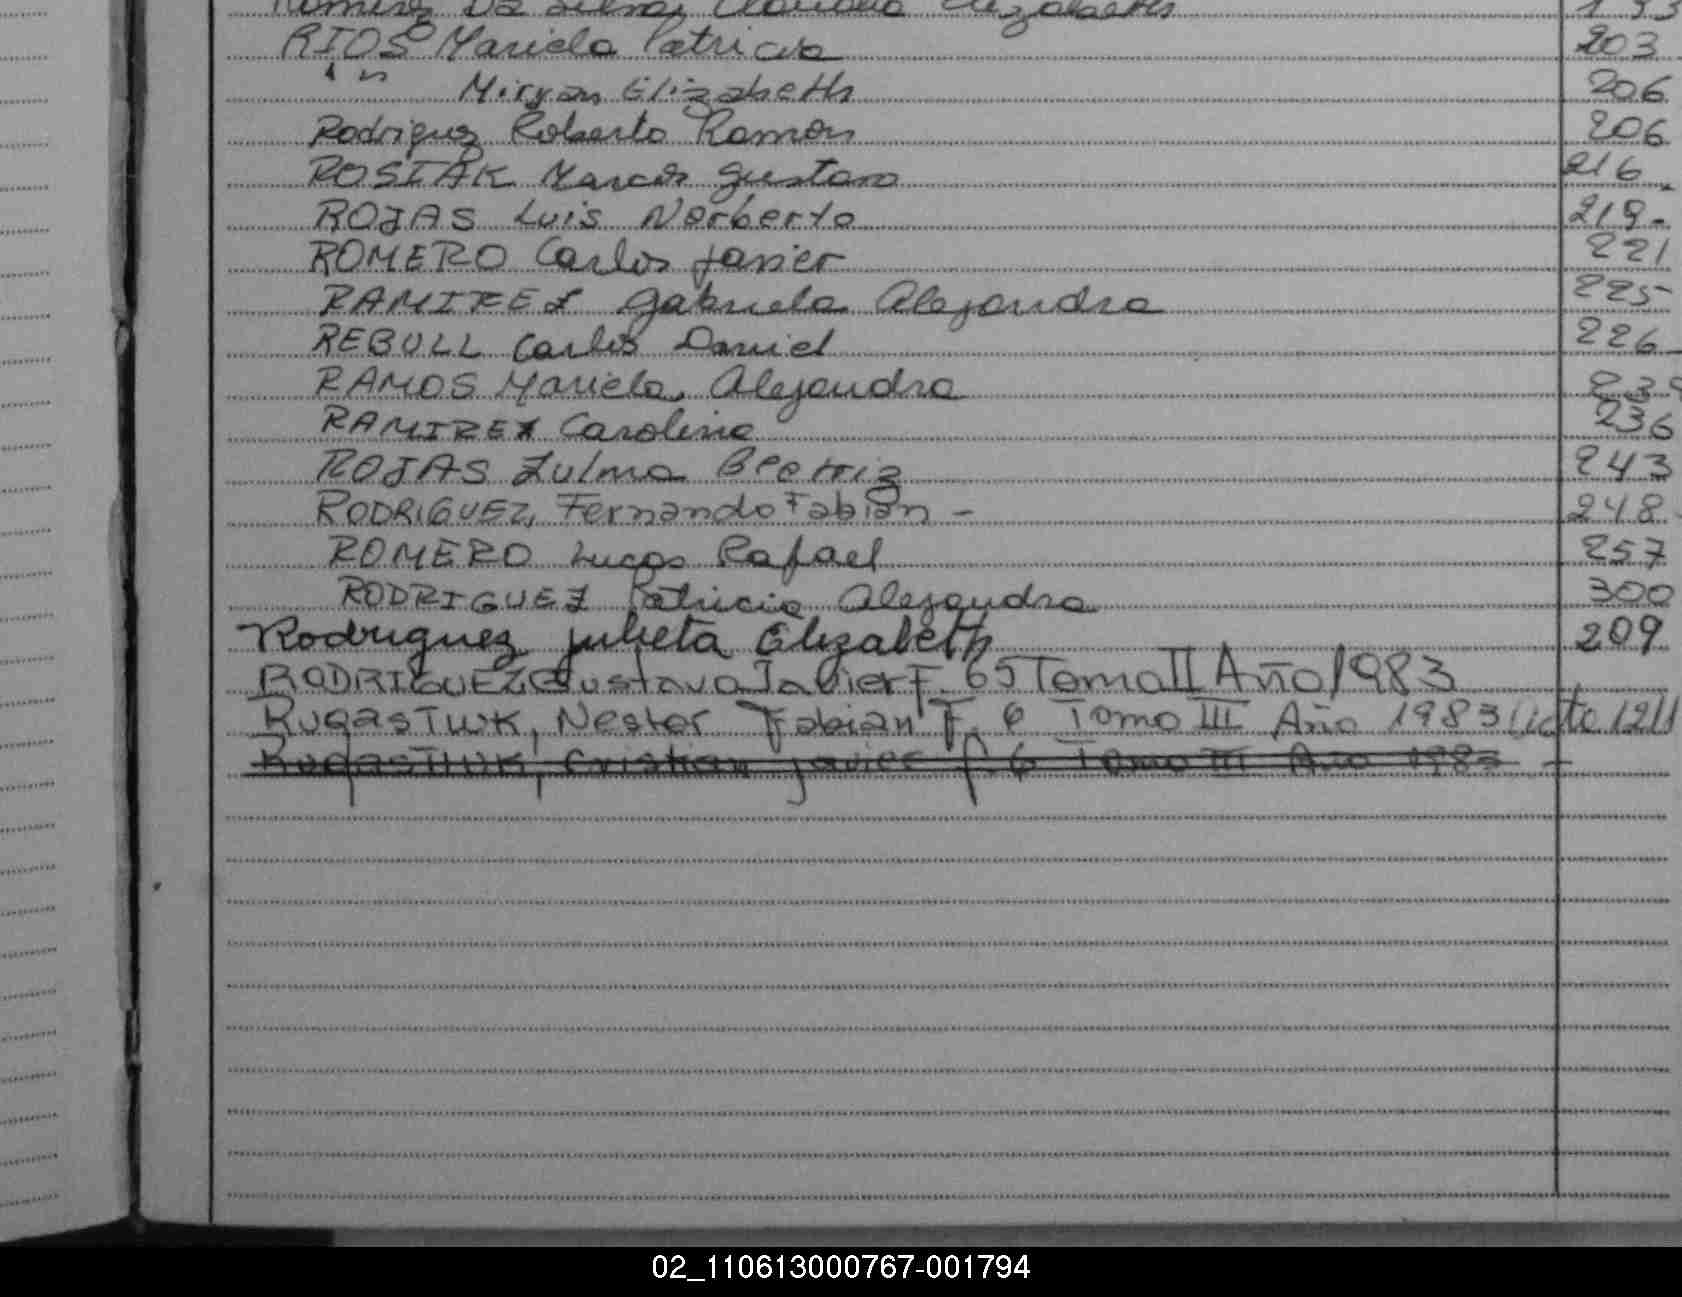 Ramirez Da Silva, Claudia Elizabeth 193
RIOS Mariela Patricia 203
" " Miryan Elizabeth 206
Rodriguez Roberto Ramon 206
ROSIAK Marcos Gustavo 216
ROJAS Luis Norberto 219-
ROMERO Carlos Javier 221
RAMIREZ Gabriela Alejandra 225
REBULL Carlos Daniel 226
RAMOS Mariela Alejandra
RAMIREZ Carolina 236
ROJAS Zulma Beatriz 243
RODRIGUEZ, Fernando Fabián - 248
ROMERO Lucas Rafael 257
RODRIGUEZ Patricia Alejandra 300
Rodriguez Julieta Elizabeth 209
RODRIGUEZ Gustavo Javier F. 65 Tomo II Año 1983
RugasTwk, Nestor Fabian F. 6 Tomo III Año 1983 1211
RugasTwk, Cristian Javier F. 6 Tomo III Año 1983
02_110613000767-001794